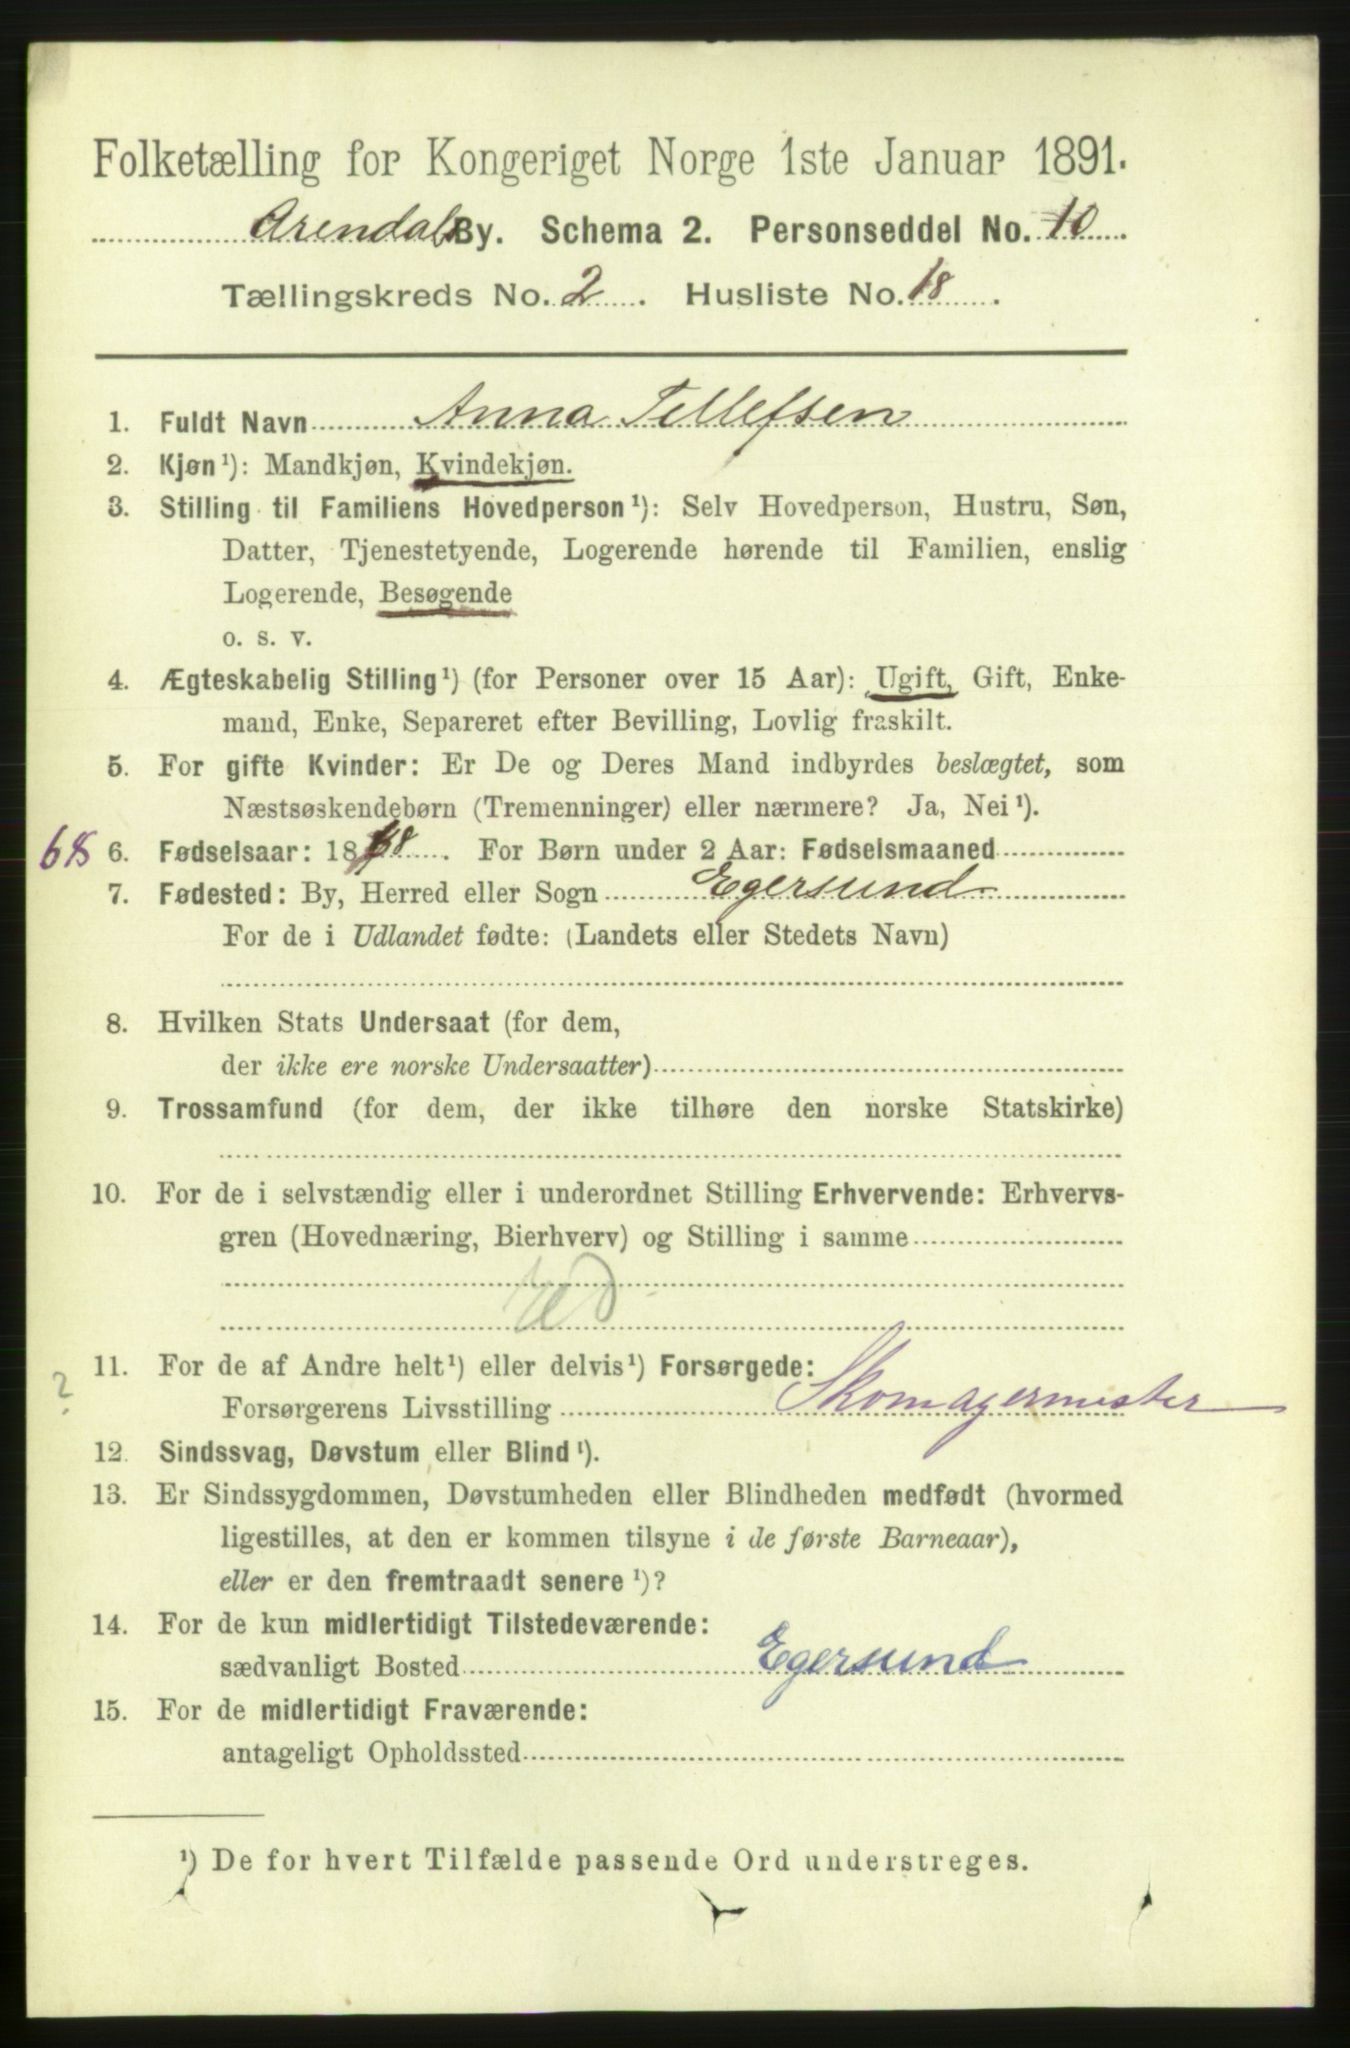 Folketælling for Kongeriget Norge 1ste Januar 1891.
Arendals By. Schema 2. Personseddel No. 10
Tællingskreds No. 2. Husliste No. 18.
1. Fuldt Navn Anna Tellefsen
2. Kjøn¹): Mandkjøn, Kvindekjøn.
3. Stilling til Familiens Hovedperson¹): Selv Hovedperson, Hustru, Søn,
Datter, Tjenestetyende, Logerende hørende til Familien, enslig
Logerende, Besøgende
o. s. v.
4. Ægteskabelig Stilling¹) (for Personer over 15 Aar): Ugift, Gift, Enke-
mand, Enke, Separeret efter Bevilling, Lovlig fraskilt.
5. For gifte Kvinder: Er De og Deres Mand indbyrdes beslægtet, som
Næstsøskendebørn (Tremenninger) eller nærmere? Ja, Nei¹).
68 6. Fødselsaar: 1868. For Børn under 2 Aar: Fødselsmaaned
7. Fødested: By, Herred eller Sogn Egersund
For de i Udlandet fødte: (Landets eller Stedets Navn)
8. Hvilken Stats Undersaat (for dem,
der ikke ere norske Undersaatter)
9. Trossamfund (for dem, der ikke tilhøre den norske Statskirke)
10. For de i selvstændig eller i underordnet Stilling Erhvervende: Erhvervs-
gren (Hovednæring, Bierhverv) og Stilling i samme
? 11. For de af Andre helt¹) eller delvis¹) Forsørgede:
Forsørgerens Livsstilling Skomagermester
12. Sindssvag, Døvstum eller Blind¹).
13. Er Sindssygdommen, Døvstumheden eller Blindheden medfødt (hvormed
ligestilles, at den er kommen tilsyne i de første Barneaar),
eller er den fremtraadt senere¹)?
14. For de kun midlertidigt Tilstedeværende:
sædvanligt Bosted Egersund
15. For de midlertidigt Fraværende:
antageligt Opholdssted
¹) De for hvert Tilfælde passende Ord understreges.